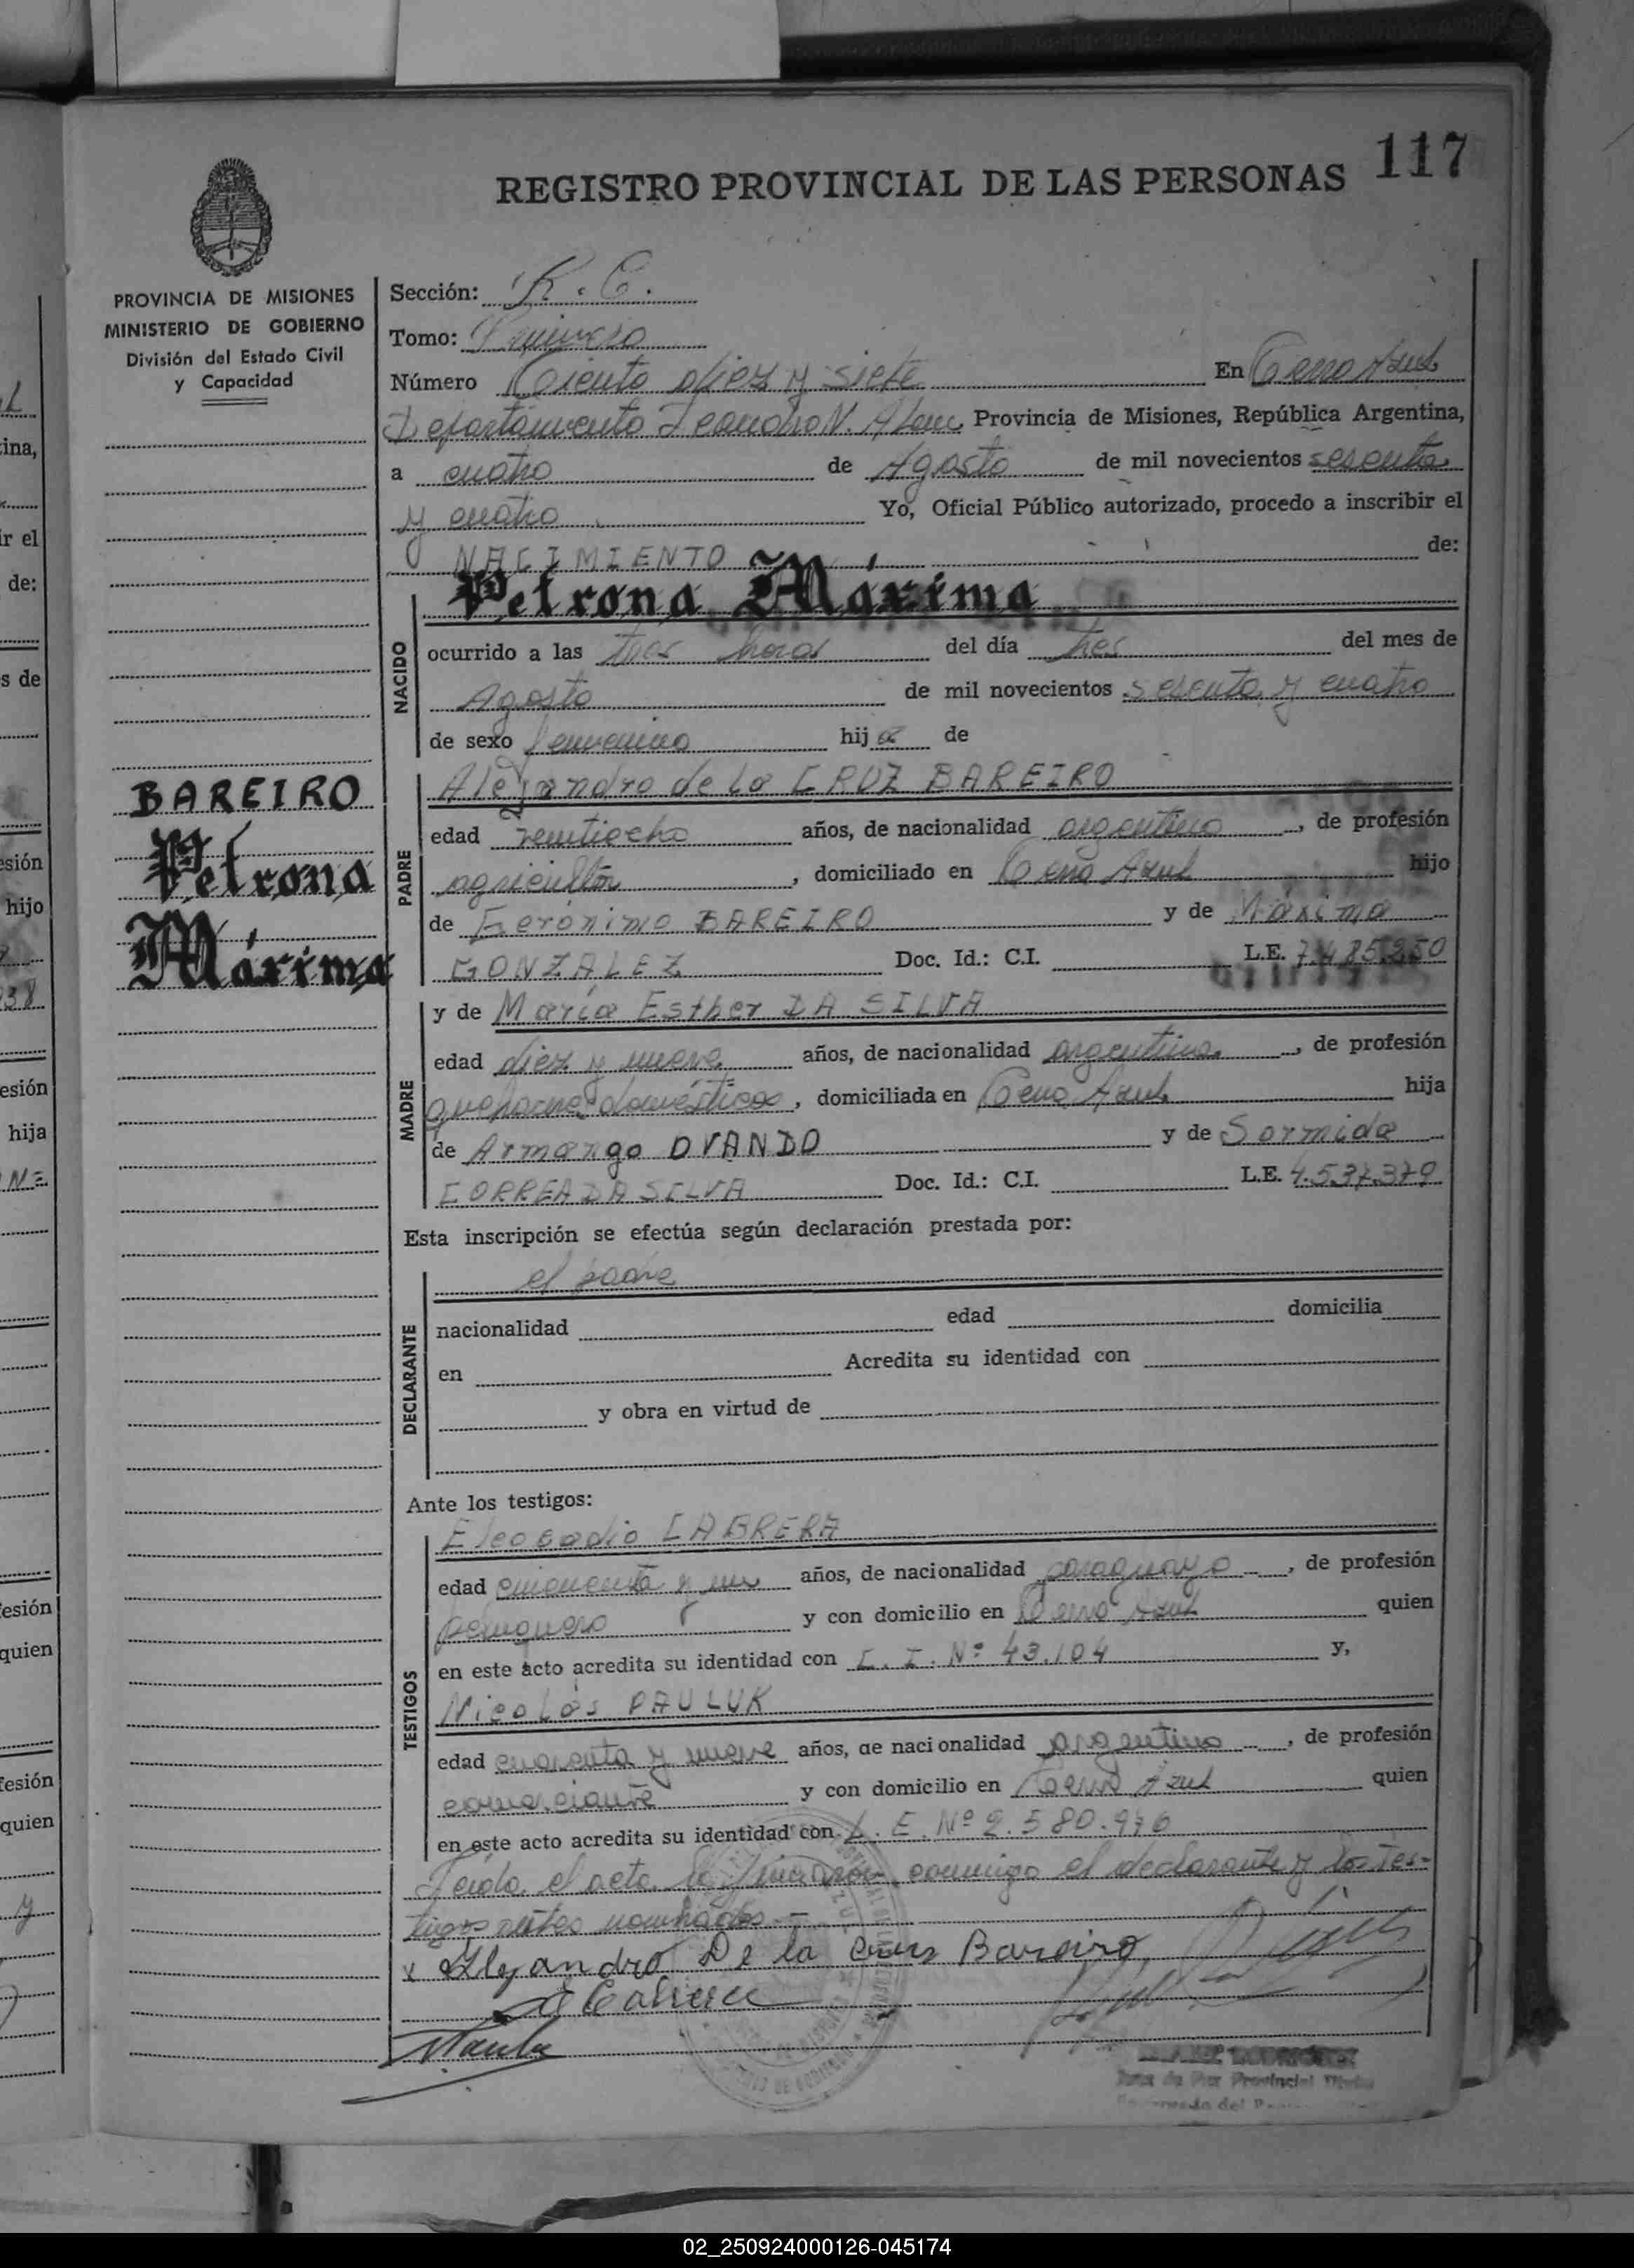 117
REGISTRO PROVINCIAL DE LAS PERSONAS
PROVINCIA DE MISIONES
MINISTERIO DE GOBIERNO
División del Estado Civil
y Capacidad
Sección: R. C.
Tomo: Primero
Número Ciento diez y siete En Cerro Azul
Departamento Leandro N. Alem Provincia de Misiones, República Argentina,
a cuatro de Agosto de mil novecientos sesenta
y cuatro Yo, Oficial Público autorizado, procedo a inscribir el
NACIMIENTO de:
Petrona Máxima
NACIDO
ocurrido a las tres horas del día tres del mes de
Agosto de mil novecientos sesenta y cuatro
de sexo femenino hija de
BAREIRO
Petrona
Máxima
PADRE
Alejandro de la CRUZ BAREIRO
edad veintiocho años, de nacionalidad argentino, de profesión
agricultor, domiciliado en Cerro Azul hijo
de Gerónimo BAREIRO y de Máxima
GONZÁLEZ Doc. Id.: C.I. L.E. 7.485.250
MADRE
y de María Esther DA SILVA
edad diez y nueve años, de nacionalidad argentina, de profesión
quehaceres domésticos, domiciliada en Cerro Azul hija
de Armango OVANDO y de Sormida
CORREA DA SILVA Doc. Id.: C.I. L.E. 4.537.379
Esta inscripción se efectúa según declaración prestada por:
DECLARANTE
el padre
nacionalidad edad domicilia
en Acredita su identidad con
y obra en virtud de
Ante los testigos:
TESTIGOS
Eleocadio CABRERA
edad cincuenta y un años, de nacionalidad paraguayo, de profesión
peluquero y con domicilio en Cerro Azul quien
en este acto acredita su identidad con C. I. Nº 43.104 y,
Nicolás PAULUK
edad cuarenta y nueve años, de nacionalidad argentino, de profesión
comerciante y con domicilio en Cerro Azul quien
en este acto acredita su identidad con L. E. Nº 2.580.976
Leída el acta, la firmaron conmigo el declarante y los tes-
tigos antes nombrados.-
x Alejandro De la Cruz Bareiro
02_250924000126-045174